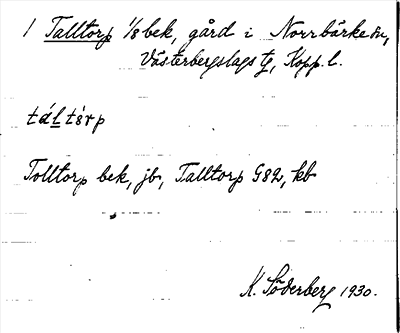 1 Talltorp 1/8 bek, gård i Norrbärke sn,
Västerbergslags tg, Kopp. l.
tált tórp
Tolltorp bek, jb, Talltorp G82, kb
K. Söderberg 1930.